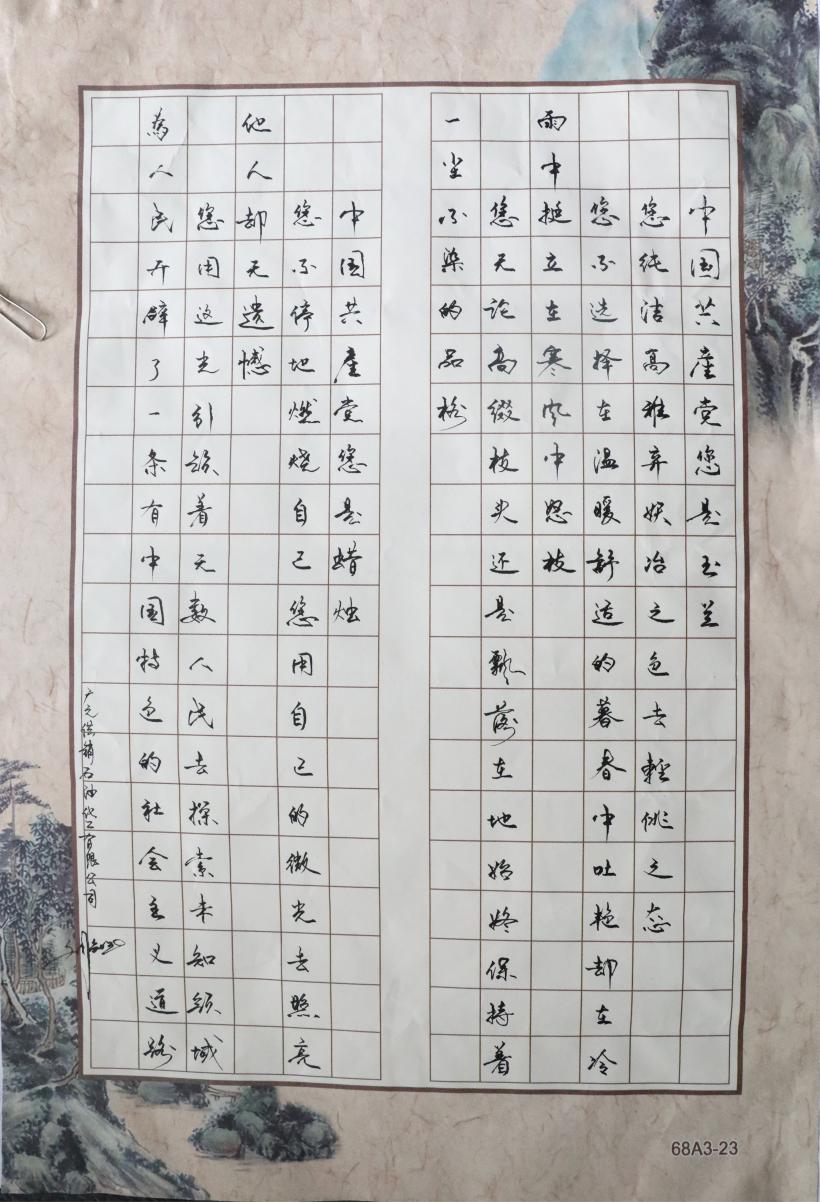 中国共產党您是玉兰
您纯洁高雅弃妖冶之色去輕佻之态
您不选择在温暖舒适的暮春中吐艳却在冷
雨中挺立在寒风中怒枝
您无论高缀枝头还是飘落在地始终保持着
一尘不染的品格
中国共產党您是蜡烛
您不停地燃烧自己您用自己的微光去照亮
他人却无遗憾
您用这光引领着无数人民去探索未知领域
為人民开辟了一条有中国特色的社会主义道路
广元供销石油化工有限公司
68A3-23